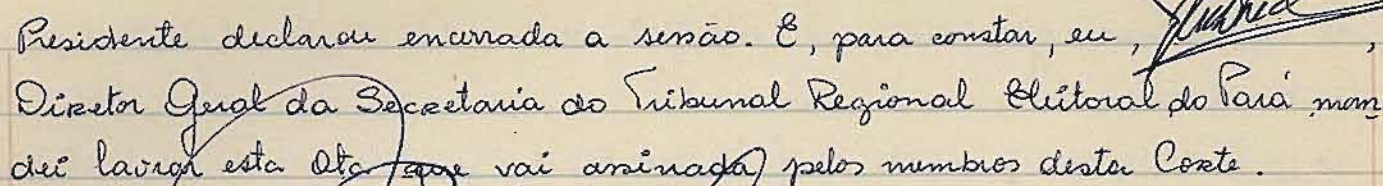 Presidente declarou encerrada a sessão. E, para constar, eu, ,
Diretor Geral da Secretaria do Tribunal Regional Eleitoral do Pará man
dei lavrar esta Ata que vai assinada pelos membros desta Corte.